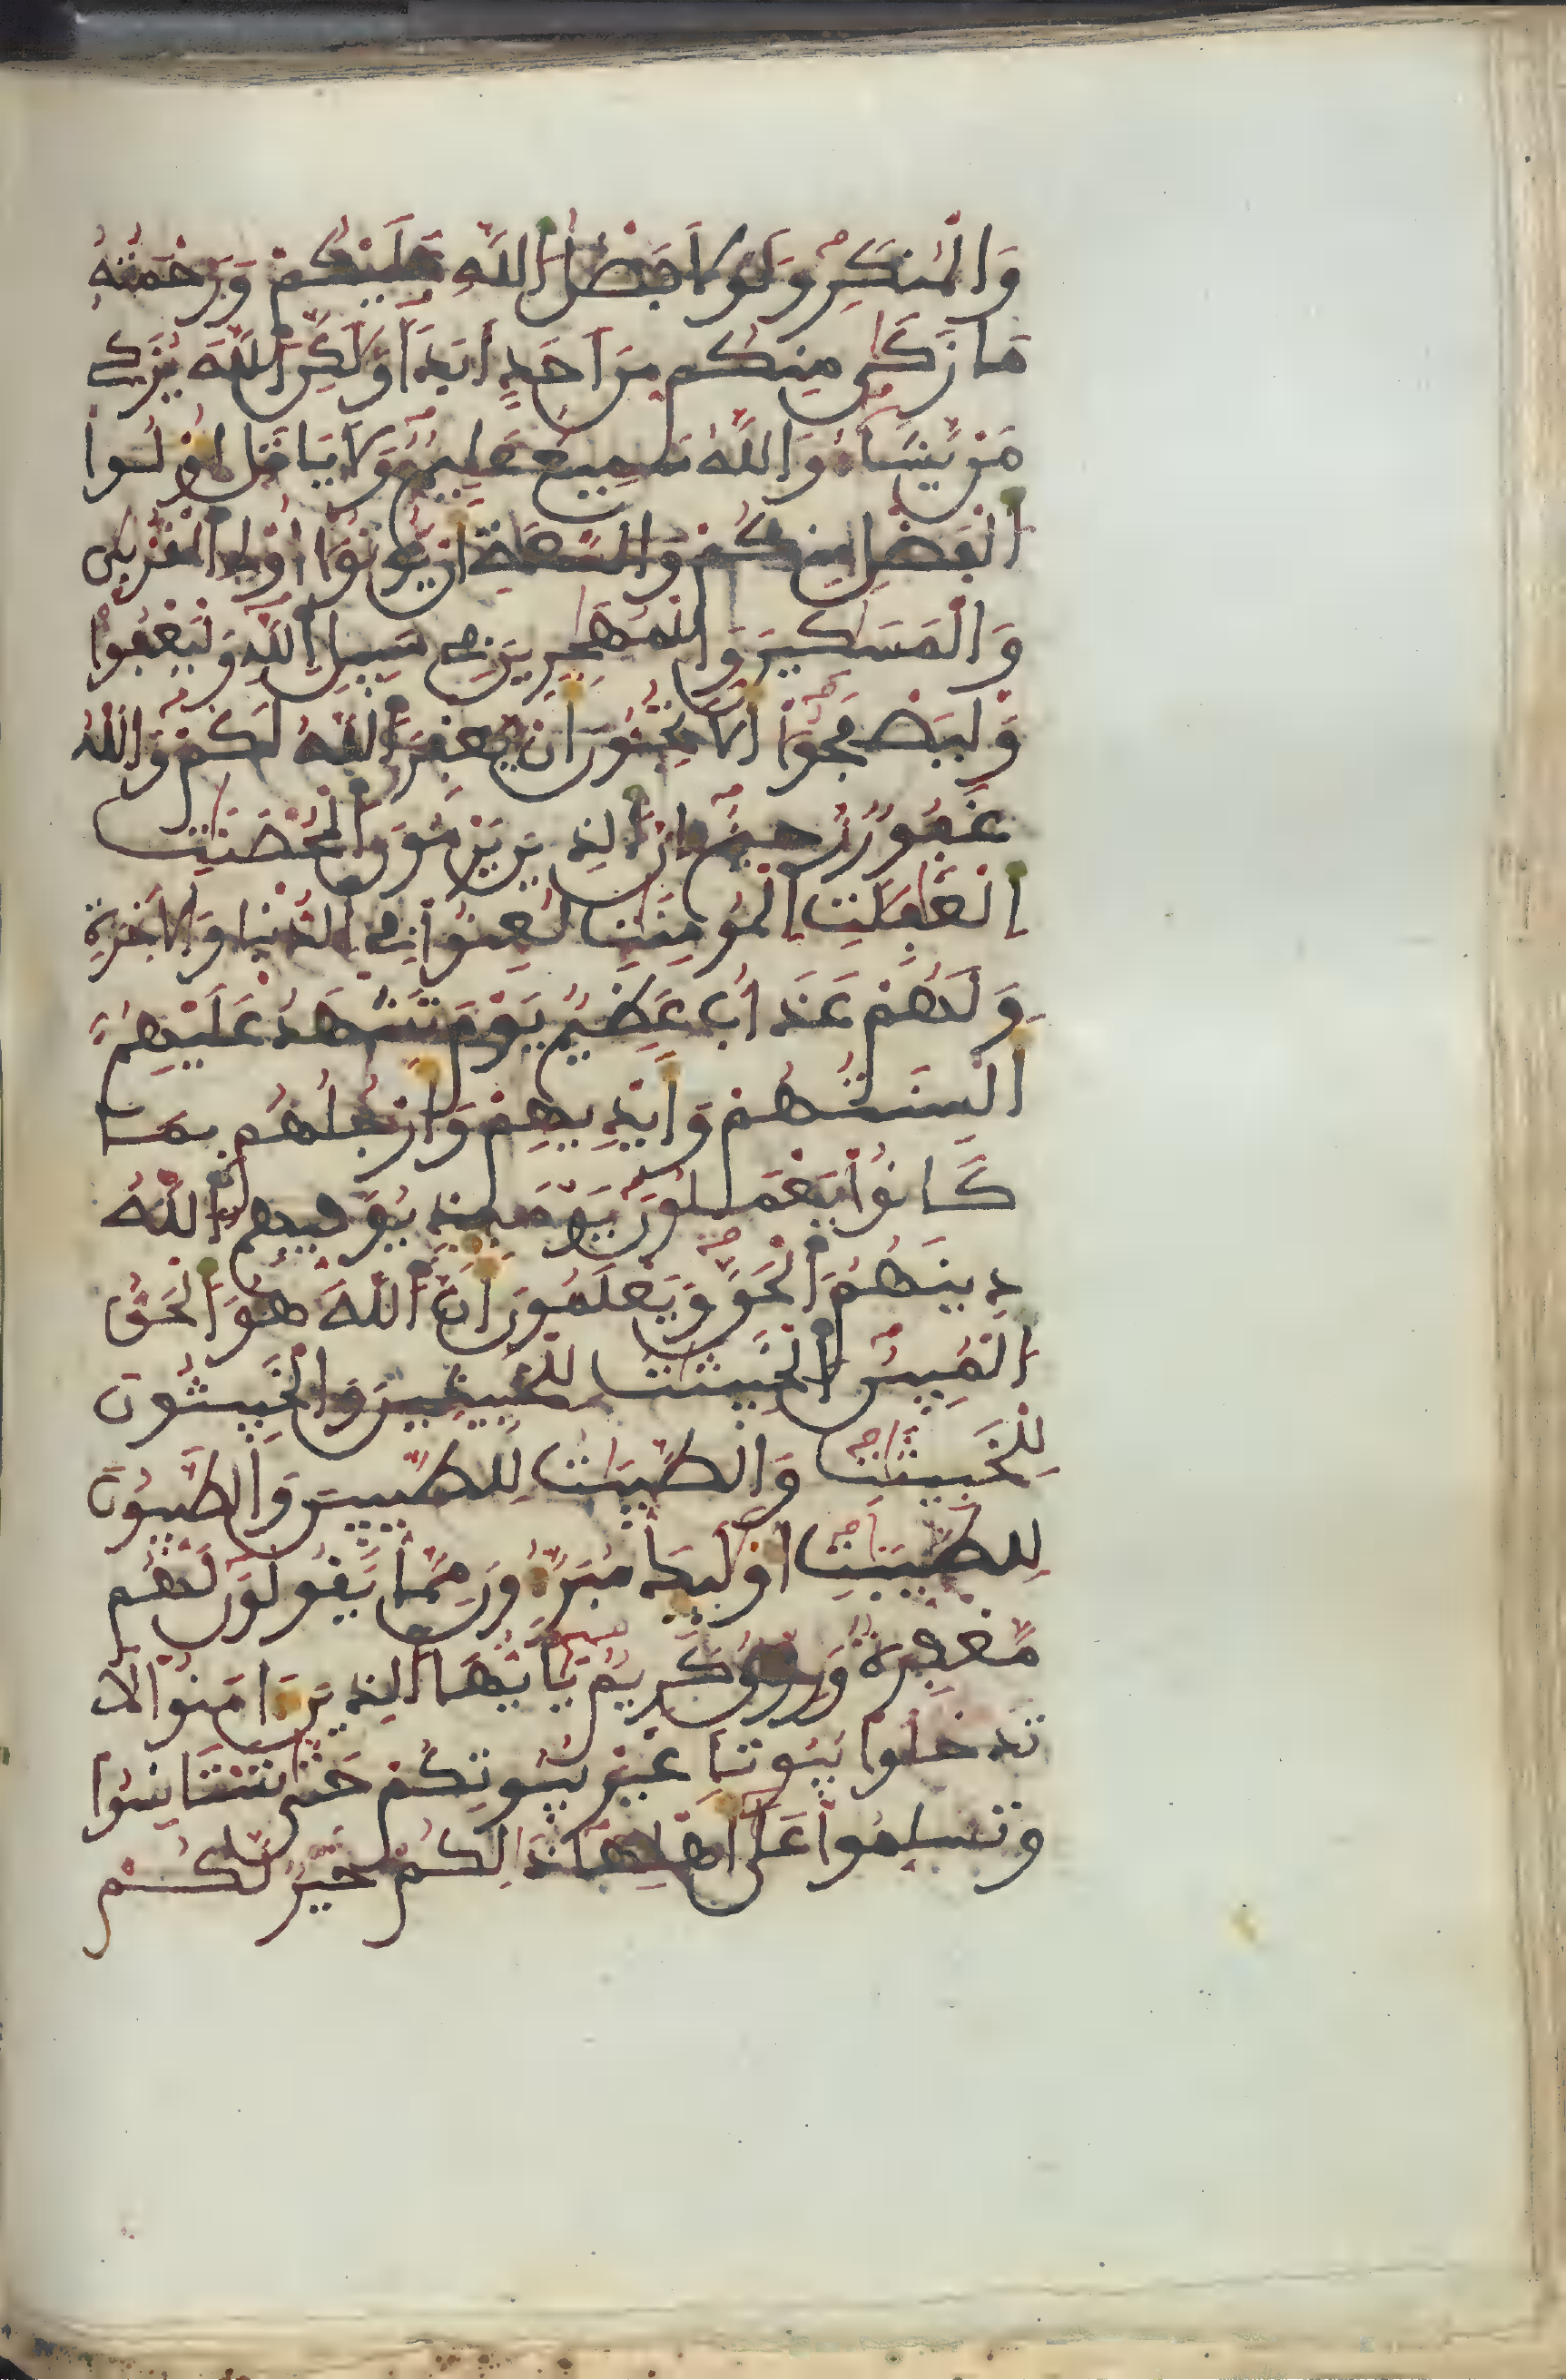 وَالْمُنكَرِ وَلَوْلَا فَضْلُ اللَّهِ عَلَيْكُمْ وَرَحْمَتُهُ
مَا زَكَىٰ مِنكُم مِّنَ اَحَدٍ اَبَدًا وَلَٰكِنَّ اللَّهَ يُزَكِّے
مَنْ يَّشَآءُ وَاللَّهُ سَمِيعٌ عَلِيمٌ وَلَا يَاتَلِ اُوْلُوا
اَلْفَضْلِ مِنكُمْ وَالسَّعَةِ أَنْ يُّوتُوٓا أُوْلِے اِلْقُرْبَىٰ
وَالْمَسَٰكِينَ وَالْمُهَٰجِرِينَ فِے سَبِيلِ اِللَّهِ وَلْيَعْفُوا
وَلْيَصْفَحُوٓا أَلَا تُحِبُّونَ أَنْ يَّغْفِرَ اَللَّهُ لَكُمْ وَاللَّهُ
غَفُورٌ رَّحِيمٌ اِنَّ اَلذِينَ يَرْمُونَ اَلْمُحْصَنَٰتِ
اِلْغَٰفِلَٰتِ اِلْمُومِنَٰتِ لُعِنُوا فِے اِلدُّنْيَا وَالَاخِرَةِ
وَلَهُمْ عَذَابٌ عَظِيمٌ يَوْمَ تَشْهَدُ عَلَيْهِمُۥٓ
أَلْسِنَتُهُمْ وَأَيْدِيهِمْ وَأَرْجُلُهُم بِمَا
كَانُوا يَعْمَلُونَ يَوْمَئِذٍ يُوَفِّيهِمُ اُللَّهُ
دِينَهُمُ اُلْحَقَّ وَيَعْلَمُونَ أَنَّ اَللَّهَ هُوَ اَلْحَقُّ
اُلْمُبِينُ اُلْخَبِيثَٰتُ لِلْخَبِيثِينَ وَالْخَبِيثُونَ
لِلْخَبِيثَٰتِ وَالطَّيِّبَٰتُ لِلطَّيِّبِينَ وَالطَّيِّبُونَ
لِلطَّيِّبَٰتِ أُوْلَٰٓئِكَ مُبَرَّءُونَ مِمَّا يَقُولُونَ لَهُم
مَّغْفِرَةٌ وَرِزْقٌ كَرِيمٌ يَٰٓأَيُّهَا اَلذِينَ ءَامَنُوا لَا
تَدْخُلُوا بُيُوتًا غَيْرَ بُيُوتِكُمْ حَتَّىٰ تَسْتَانِسُوا
وَتُسَلِّمُوا عَلَىٰٓ أَهْلِهَا ذَٰلِكُمْ خَيْرٌ لَّكُمْ